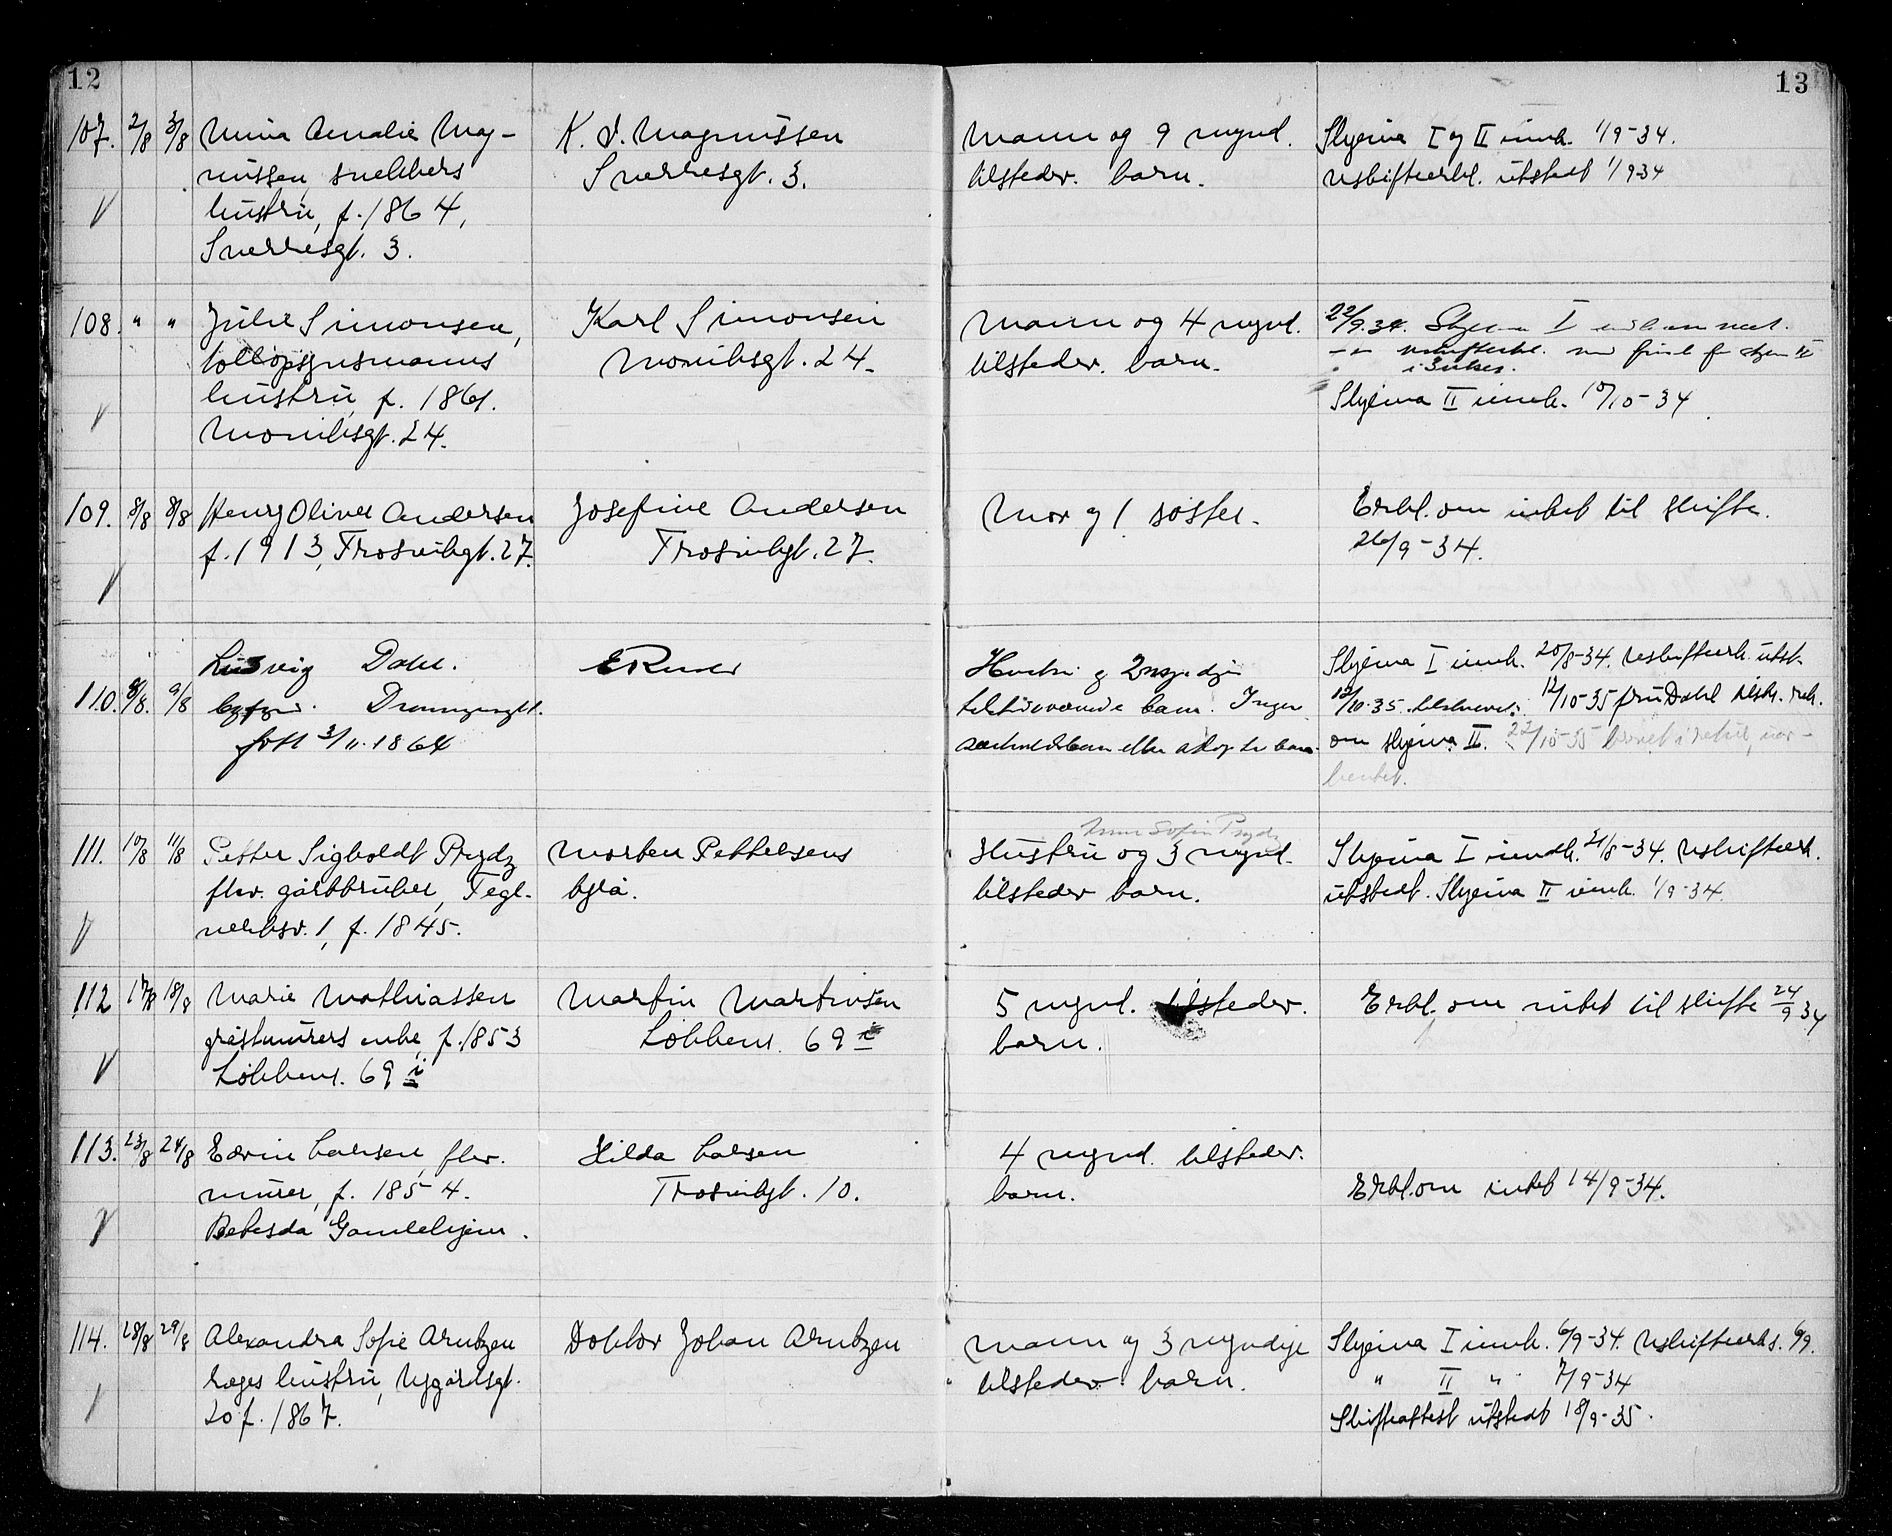 12
13
107. 2/8 3/8 Mina Amalie Mag-
nussen, snekkers
hustru, f. 1864,
Sverresgt. 3.
K. J. Magnussen
Sverresgt. 3.
Mann og 9 mynd.
tilstedev. barn.
Skjema I og II innk. 1/9-34.
Uskifteerkl. utstedt 1/9-34
108. " " Julie Simonsen,
tollopsynsmanns
hustru, f. 1861.
Munksgt. 24.
Karl Simonsen
Munkegt. 24.
Mann og 4 mynd.
tilstedev. barn.
22/9.34. Skjema I
Skjema II innk. 10/10-34
109. 8/8 8/8 Henry Oliver Andersen
f. 1913, Trosvikgt. 27.
Josefine Andersen
Trosvikgt. 27.
Mor og 1 søster.
Erkl. om intet til skifte.
26/9-34.
110. 8/8. 9/8 Ludvig Dahl.
Dronningensgt.
født 3/11.1864
Hustru og 2 myndige
tilstedeværende barn. Ingen
særkuldsbarn eller adoptivbarn.
Skjema I innk. 20/8-34. Uskifteerk. utst.
12/10-35 fru Dahl tilskr.
om skjema II. 22/10-35 brevet i retur, uav-
hentet.
111. 10/8 11/8 Petter Sigholdt Prydz
fhv. gårdbruker, Tegl-
verksv. 1, f. 1845.
Morten Pettersens
byrå.
Anna Sofie Prydz
Hustru og 3 mynd.
tilstedev barn.
Skjema I innk. 21/8-34. Uskifteerk.
utstedt. Skjema II innk. 1/9-34.
112 17/8 18/8 Marie Mathiassen
gråstmurers enke, f. 1853
Løkkens. 69 i
Martin Martinsen
Løkkens. 69 i
5 mynd. tilstedev.
barn.
Erkl. om intet til skifte 24/9 34
113. 23/8 24/8 Edvin Larsen, fhv.
murer, f. 1854.
Betesda Gamlehjem.
Hilda Larsen
Trosvikgt. 10.
4 mynd. tilstedev.
barn.
Erkl. om intet 14/9-34.
114. 28/8 29/8 Alexandra Sofie Arntzen
læges hustru, Nygårdsgt.
20 f. 1867.
Doktor Johan Arntzen
Mann og 3 myndige
tilstedev. barn.
Skjema I innk. 6/9-34. Uskifteerk. 6/9.
" II " 7/9-34
Skifteattest utstedt 18/9-35.